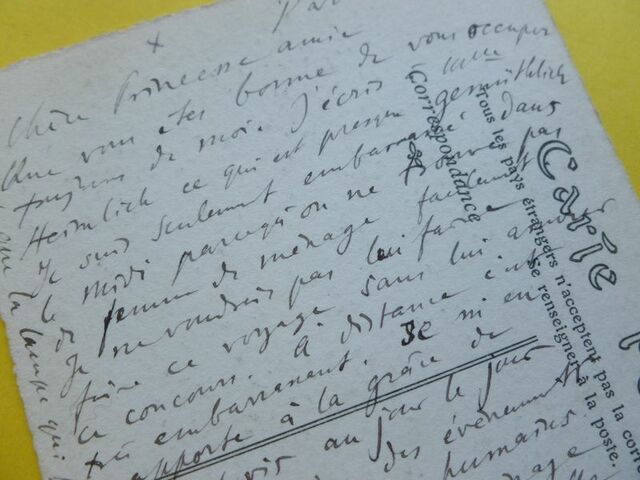 Par
Chère Princesse amie
Que vous êtes bonne de vous occuper
toujours de moi. J'écris
Heimlich ce qui est presque gemüthlich
Je suis seulement embarrassé dans
le midi parcequ'on ne trouve pas
de femme de ménage facilement
Je ne voudrais pas lui faire
faire ce voyage sans lui
ce concours. A distance c'est
très embarrassant. Je m'en
rapporte à la grâce de
au jour le jour
des événements
humains.
ménage
que la lampe qui
Carte
Correspondance
Tous les pays étrangers n'acceptent pas la corr
Se renseigner à la poste.